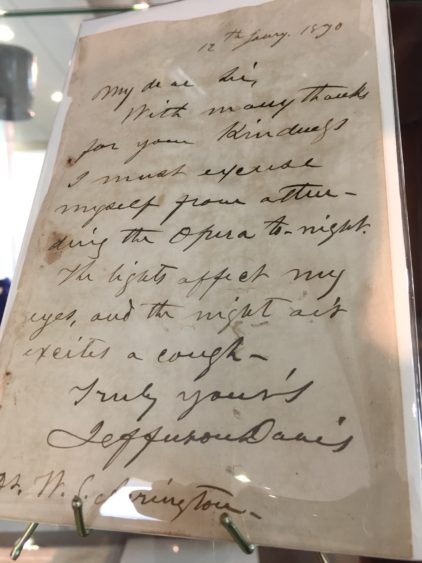 12th Jany. 1870
My dear Sir,
With many thanks
for your Kindness
I must excuse
myself from atten-
ding the Opera to-night.
The lights affect my
eyes, and the night air
excites a cough-
Truly yours
Jefferson Davis
W.